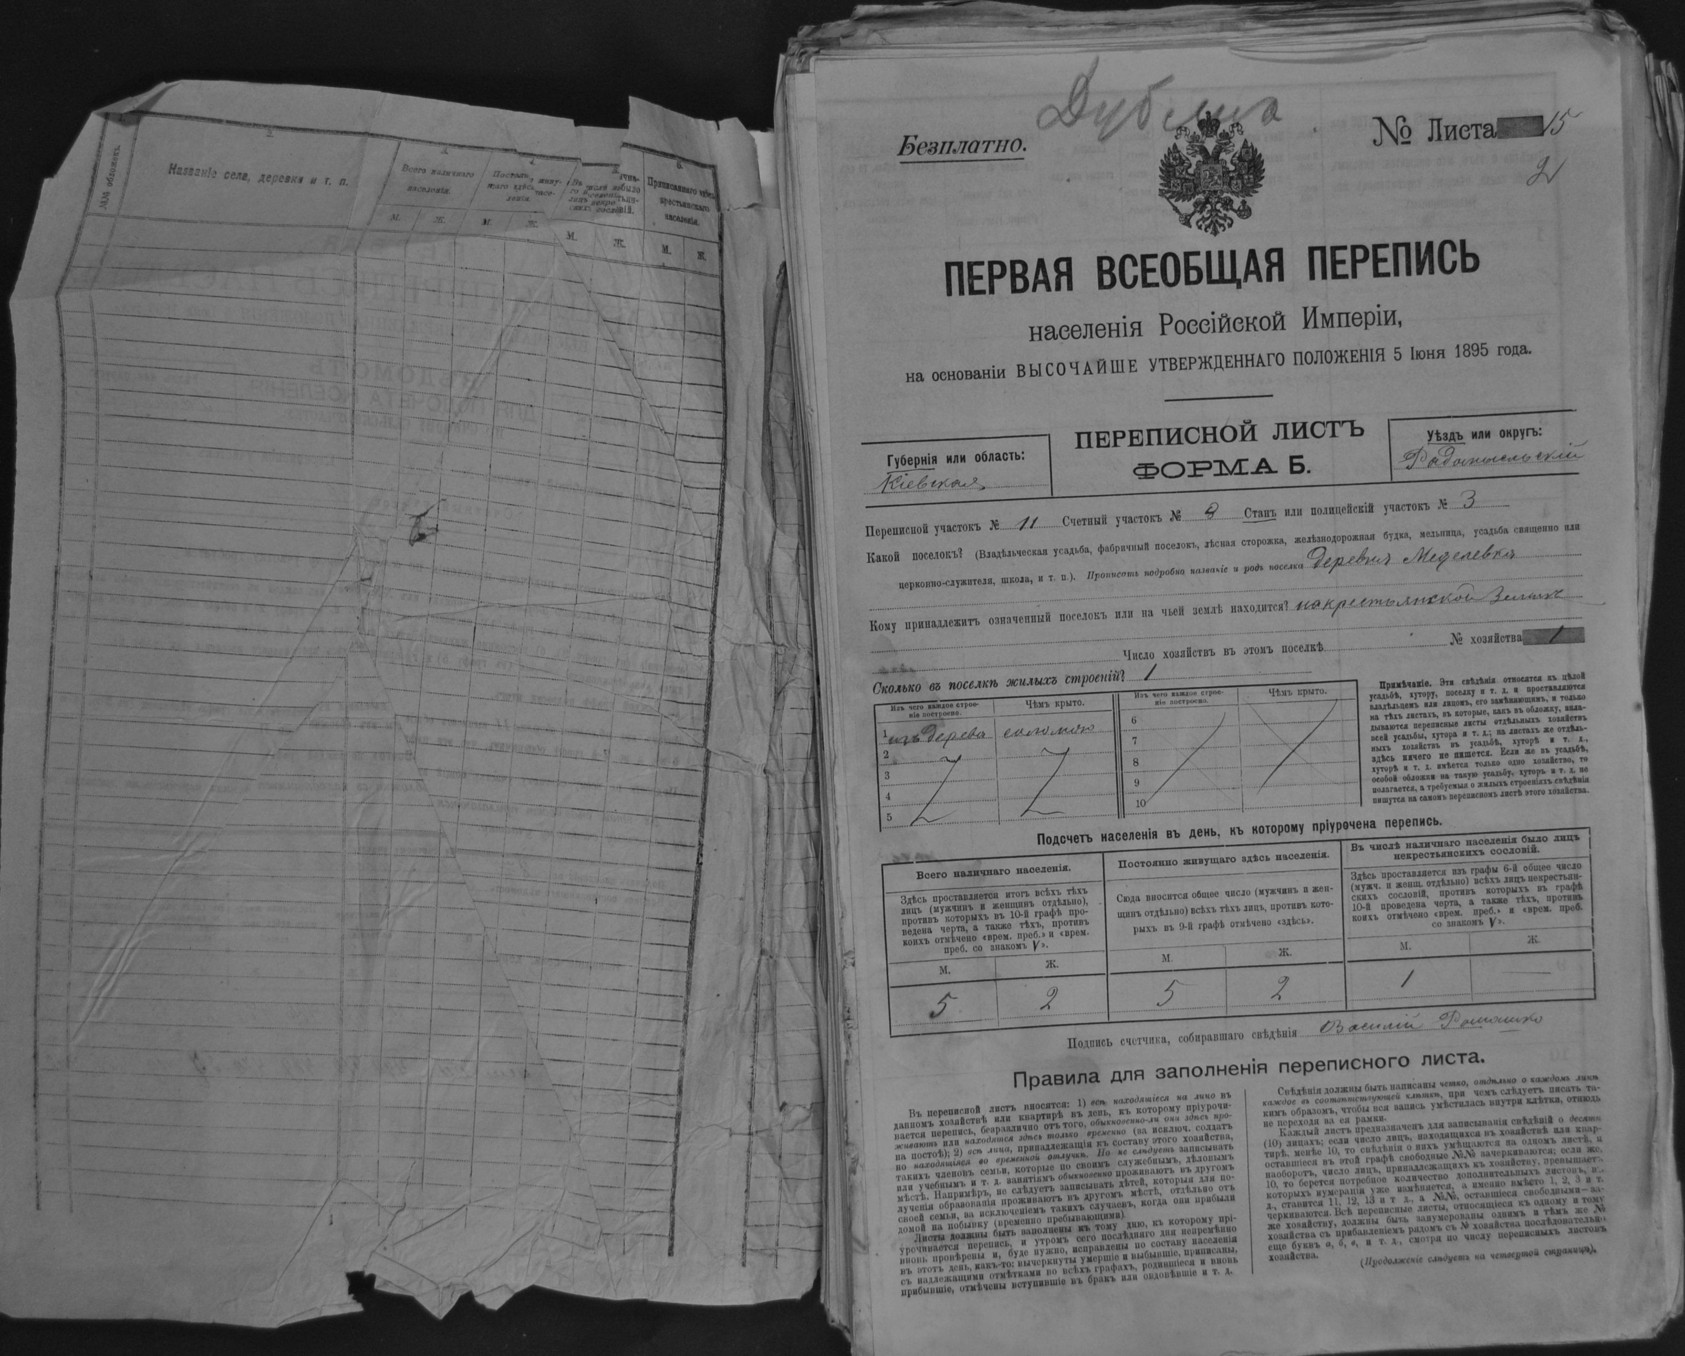 №№ обложекъ.
2.
Названіе села, деревни и т. п.
3.
Всего наличнаго населенія.
М.
Ж.
М.
Ж.
М.
Ж.
6.
Приписаннаго
крестьянскаго
населенія.
М.
Ж.
Безплатно.
№ Листа 15
2
ПЕРВАЯ ВСЕОБЩАЯ ПЕРЕПИСЬ
населенія Россійской Имперіи,
на основаніи ВЫСОЧАЙШЕ УТВЕРЖДЕННАГО ПОЛОЖЕНІЯ 5 Іюня 1895 года.
Губернія или область:
Кіевская
ПЕРЕПИСНОЙ ЛИСТЪ
ФОРМА Б.
Уѣздъ или округъ:
Радомысльскій
Переписной участокъ № 11 Счетный участокъ № Станъ или полицейскій участокъ № 3
Какой поселокъ? (Владѣльческая усадьба, фабричный поселокъ, лѣсная сторожка, желѣзнодорожная будка, мельница, усадьба священно или
церковно-служителя, школа, и т. п.). Прописать подробно названіе и родъ поселка деревня Меделевка
Кому принадлежитъ означенный поселокъ или на чьей землѣ находится? на крестьянской землѣ
Число хозяйствъ въ этомъ поселкѣ № хозяйства 1
Сколько въ поселкѣ жилыхъ строеній? 1
Изъ чего каждое строеніе построено.
Чѣмъ крыто.
Изъ чего каждое строеніе построено.
Чѣмъ крыто.
1 изъ дерева соломою
2
3
4
5
6
7
8
9
10
Примѣчаніе. Эти свѣдѣнія относятся къ цѣлой
усадьбѣ, хутору, поселку и т. д. и проставляются
владѣльцемъ или лицомъ, его замѣняющимъ, и только
на тѣхъ листахъ, въ которые, какъ въ обложку, вкла-
дываются переписные листы отдѣльныхъ хозяйствъ
всей усадьбы, хутора и т. д.; на листахъ же отдѣль-
ныхъ хозяйствъ въ усадьбѣ, хуторѣ и т. д.,
здѣсь ничего не пишется. Если же въ усадьбѣ,
хуторѣ и т. д. имѣется только одно хозяйство, то
особой обложки на такую усадьбу, хуторъ и т. д. не
полагается, а требуемыя о жилыхъ строеніяхъ свѣдѣнія
пишутся на самомъ переписномъ листѣ этого хозяйства.
Подсчетъ населенія въ день, къ которому пріурочена перепись.
Всего наличнаго населенія.
Здѣсь проставляется итогъ всѣхъ тѣхъ
лицъ (мужчинъ и женщинъ отдѣльно),
противъ которыхъ въ 10-й графѣ про-
ведена черта, а также тѣхъ, противъ
коихъ отмѣчено «врем. преб.» и «врем.
преб. со знакомъ V».
М.
Ж.
5
2
Постоянно живущаго здѣсь населенія.
Сюда вносится общее число (мужчинъ и жен-
щинъ отдѣльно) всѣхъ тѣхъ лицъ, противъ кото-
рыхъ въ 9-й графѣ отмѣчено «здѣсь».
М.
Ж.
5
2
Въ числѣ наличнаго населенія было лицъ
некрестьянскихъ сословій.
Здѣсь проставляется изъ графы 6-й общее число
(мужч. и женщ. отдѣльно) всѣхъ лицъ некрестьян-
скихъ сословій, противъ которыхъ въ графѣ
10-й проведена черта, а также тѣхъ, противъ
коихъ отмѣчено «врем. преб.» и «врем. преб.
со знакомъ V».
М.
Ж.
1
Подпись счетчика, собиравшаго свѣдѣнія Василій
Правила для заполненія переписного листа.
Въ переписной листъ вносятся: 1) всѣ находящіеся на лицо въ
данномъ хозяйствѣ или квартирѣ въ день, къ которому пріурочи-
вается перепись, безразлично отъ того, обыкновенно-ли они здѣсь про-
живаютъ или находятся здѣсь только временно (за исключ. солдатъ
на постоѣ); 2) всѣ лица, принадлежащія къ составу этого хозяйства,
но находящіяся во временной отлучкѣ. Но не слѣдуетъ записывать
такихъ членовъ семьи, которые по своимъ служебнымъ, дѣловымъ
или учебнымъ и т. д. занятіямъ обыкновенно проживаютъ въ другомъ
мѣстѣ. Напримѣръ, не слѣдуетъ записывать дѣтей, которыя для по-
лученія образованія проживаютъ въ другомъ мѣстѣ, отдѣльно отъ
своей семьи, за исключеніемъ такихъ случаевъ, когда они прибыли
домой на побывку (временно пребывающими).
Листы должны быть заполнены къ тому дню, къ которому прі-
урочивается перепись, и утромъ сего послѣдняго дня непремѣнно
вновь провѣрены и, буде нужно, исправлены по составу населенія
въ этотъ день, какъ-то: вычеркнуты умершіе и выбывшіе, приписаны,
съ надлежащими отмѣтками во всѣхъ графахъ, родившіеся и вновь
прибывшіе, отмѣчены вступившіе въ бракъ или овдовѣвшіе и т. д.
Свѣдѣнія должны быть написаны четко, отдѣльно о каждомъ лицѣ
каждое въ соотвѣтствующей клѣткѣ, при чемъ слѣдуетъ писать та-
кимъ образомъ, чтобы вся запись умѣстилась внутри клѣтки, отнюдь
не переходя за ея рамки.
Каждый листъ предназначенъ для записыванія свѣдѣній о десяти
(10) лицахъ; если число лицъ, находящихся въ хозяйствѣ или квар-
тирѣ, менѣе 10, то свѣдѣнія о нихъ умѣщаются на одномъ листѣ, и
оставшіеся въ этой графѣ свободные №№ зачеркиваются; если же,
наоборотъ, число лицъ, принадлежащихъ къ хозяйству, превышаетъ
10, то берется потребное количество дополнительныхъ листовъ, въ
которыхъ нумерація уже измѣняется, а именно вмѣсто 1, 2, 3 и т.
д., ставится 11, 12, 13 и т. д., а №№, оставшіеся свободными—за-
черкиваются. Всѣ переписные листы, относящіеся къ одному и тому
же хозяйству, должны быть занумерованы однимъ и тѣмъ же №
хозяйства съ прибавленіемъ рядомъ съ № хозяйства послѣдовательно
еще буквъ а, б, в, и т. д., смотря по числу переписныхъ листовъ
хозяйства.
(Продолженіе слѣдуетъ на четвертой страницѣ).